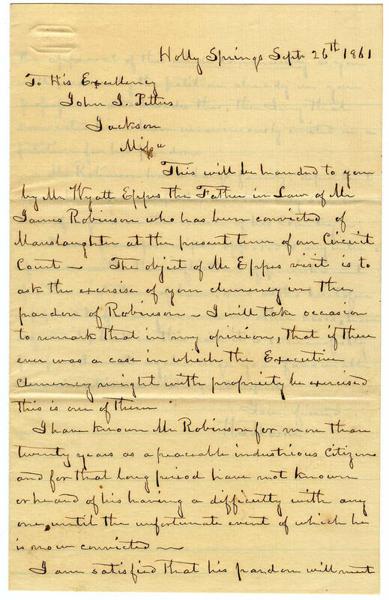 Holly Springs Sept 26th 1861
To His Excellency
John J. Pettus
Jackson
Mipi
This will be handed to you
by Mr Wyatt Eppes the Father in Law of Mr
James Robinson who has been convicted of
Manslaughter at the present term of our Circuit
Court - The object of Mr Eppes visit is to
ask the exersise of your clemency in the
pardon of Robinson - I will take occasion
to remark that in my opinion, that if there
ever was a case in which the Executive
clemency might with propriety be exercised
this is one of them
I have known Mr Robinson for more than
twenty years as a peaceable industrious Citizen
and for that long period have not known
or heard of his having a difficulty with any
one, until the unfortunate event of which he
is now convicted -
I am satisfied that his pardon will meet